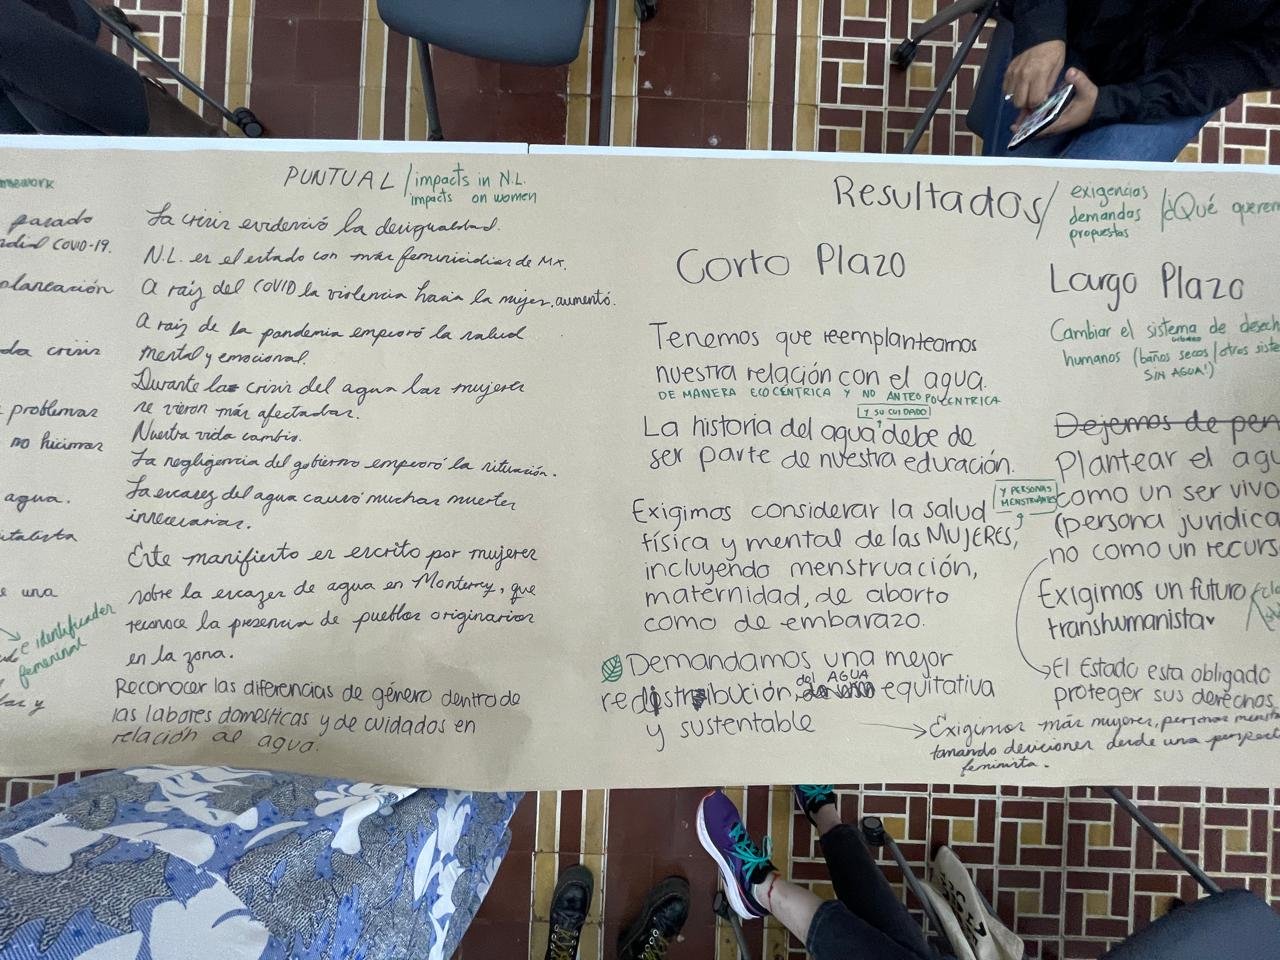 pasado
COVID-19.
planeación
crisis
problemas
no hicimos
agua.
una
e identificador
femeninal
y
PUNTUAL / impacts in N.L.
impacts on women
La crisis evidenció la desigualdad.
N.L. es el estado con más feminicidios de MX.
A raíz del COVID la violencia hacia la mujer aumentó.
A raíz de la pandemia empeoró la salud
mental y emocional.
Durante las crisis del agua las mujeres
se vieron más afectadas.
Nuestra vida cambio.
La negligencia del gobierno empeoró la situación.
La escasez del agua causó muchas muertes
innecesarias.
Este manifiesto es escrito por mujeres
sobre la escazes de agua en Monterrey, que
reconoce la presencia de pueblos originarios
en la zona.
Reconocer las diferencias de género dentro de
las labores domésticas y de cuidados en
relación al agua.
Resultados / exigencias
demandas
propuestas
/ ¿Qué
Corto Plazo
Tenemos que reemplantearnos
nuestra relación con el agua.
DE MANERA ECOCÉNTRICA Y NO ANTROPOCÉNTRICA
Y SU CUIDADO
La historia del agua debe de
ser parte de nuestra educación.
Exigimos considerar la salud
física y mental de las MUJERES,
Y PERSONAS
MENSTRUANTES
incluyendo menstruación,
maternidad, de aborto
como de embarazo.
Demandamos una mejor
redistribución, del AGUA equitativa
y sustentable
Largo Plazo
Cambiar el sistema de
urbano
humanos (baños secos/otros
SIN AGUA!)
Dejemos de
Plantear el
como un ser vivo
(persona jurídica
no como un
Exigimos un futuro
transhumanista
El Estado esta obligado
proteger sus derechos
Exigimos más mujeres, personas
tomando decisiones desde una
feminista.